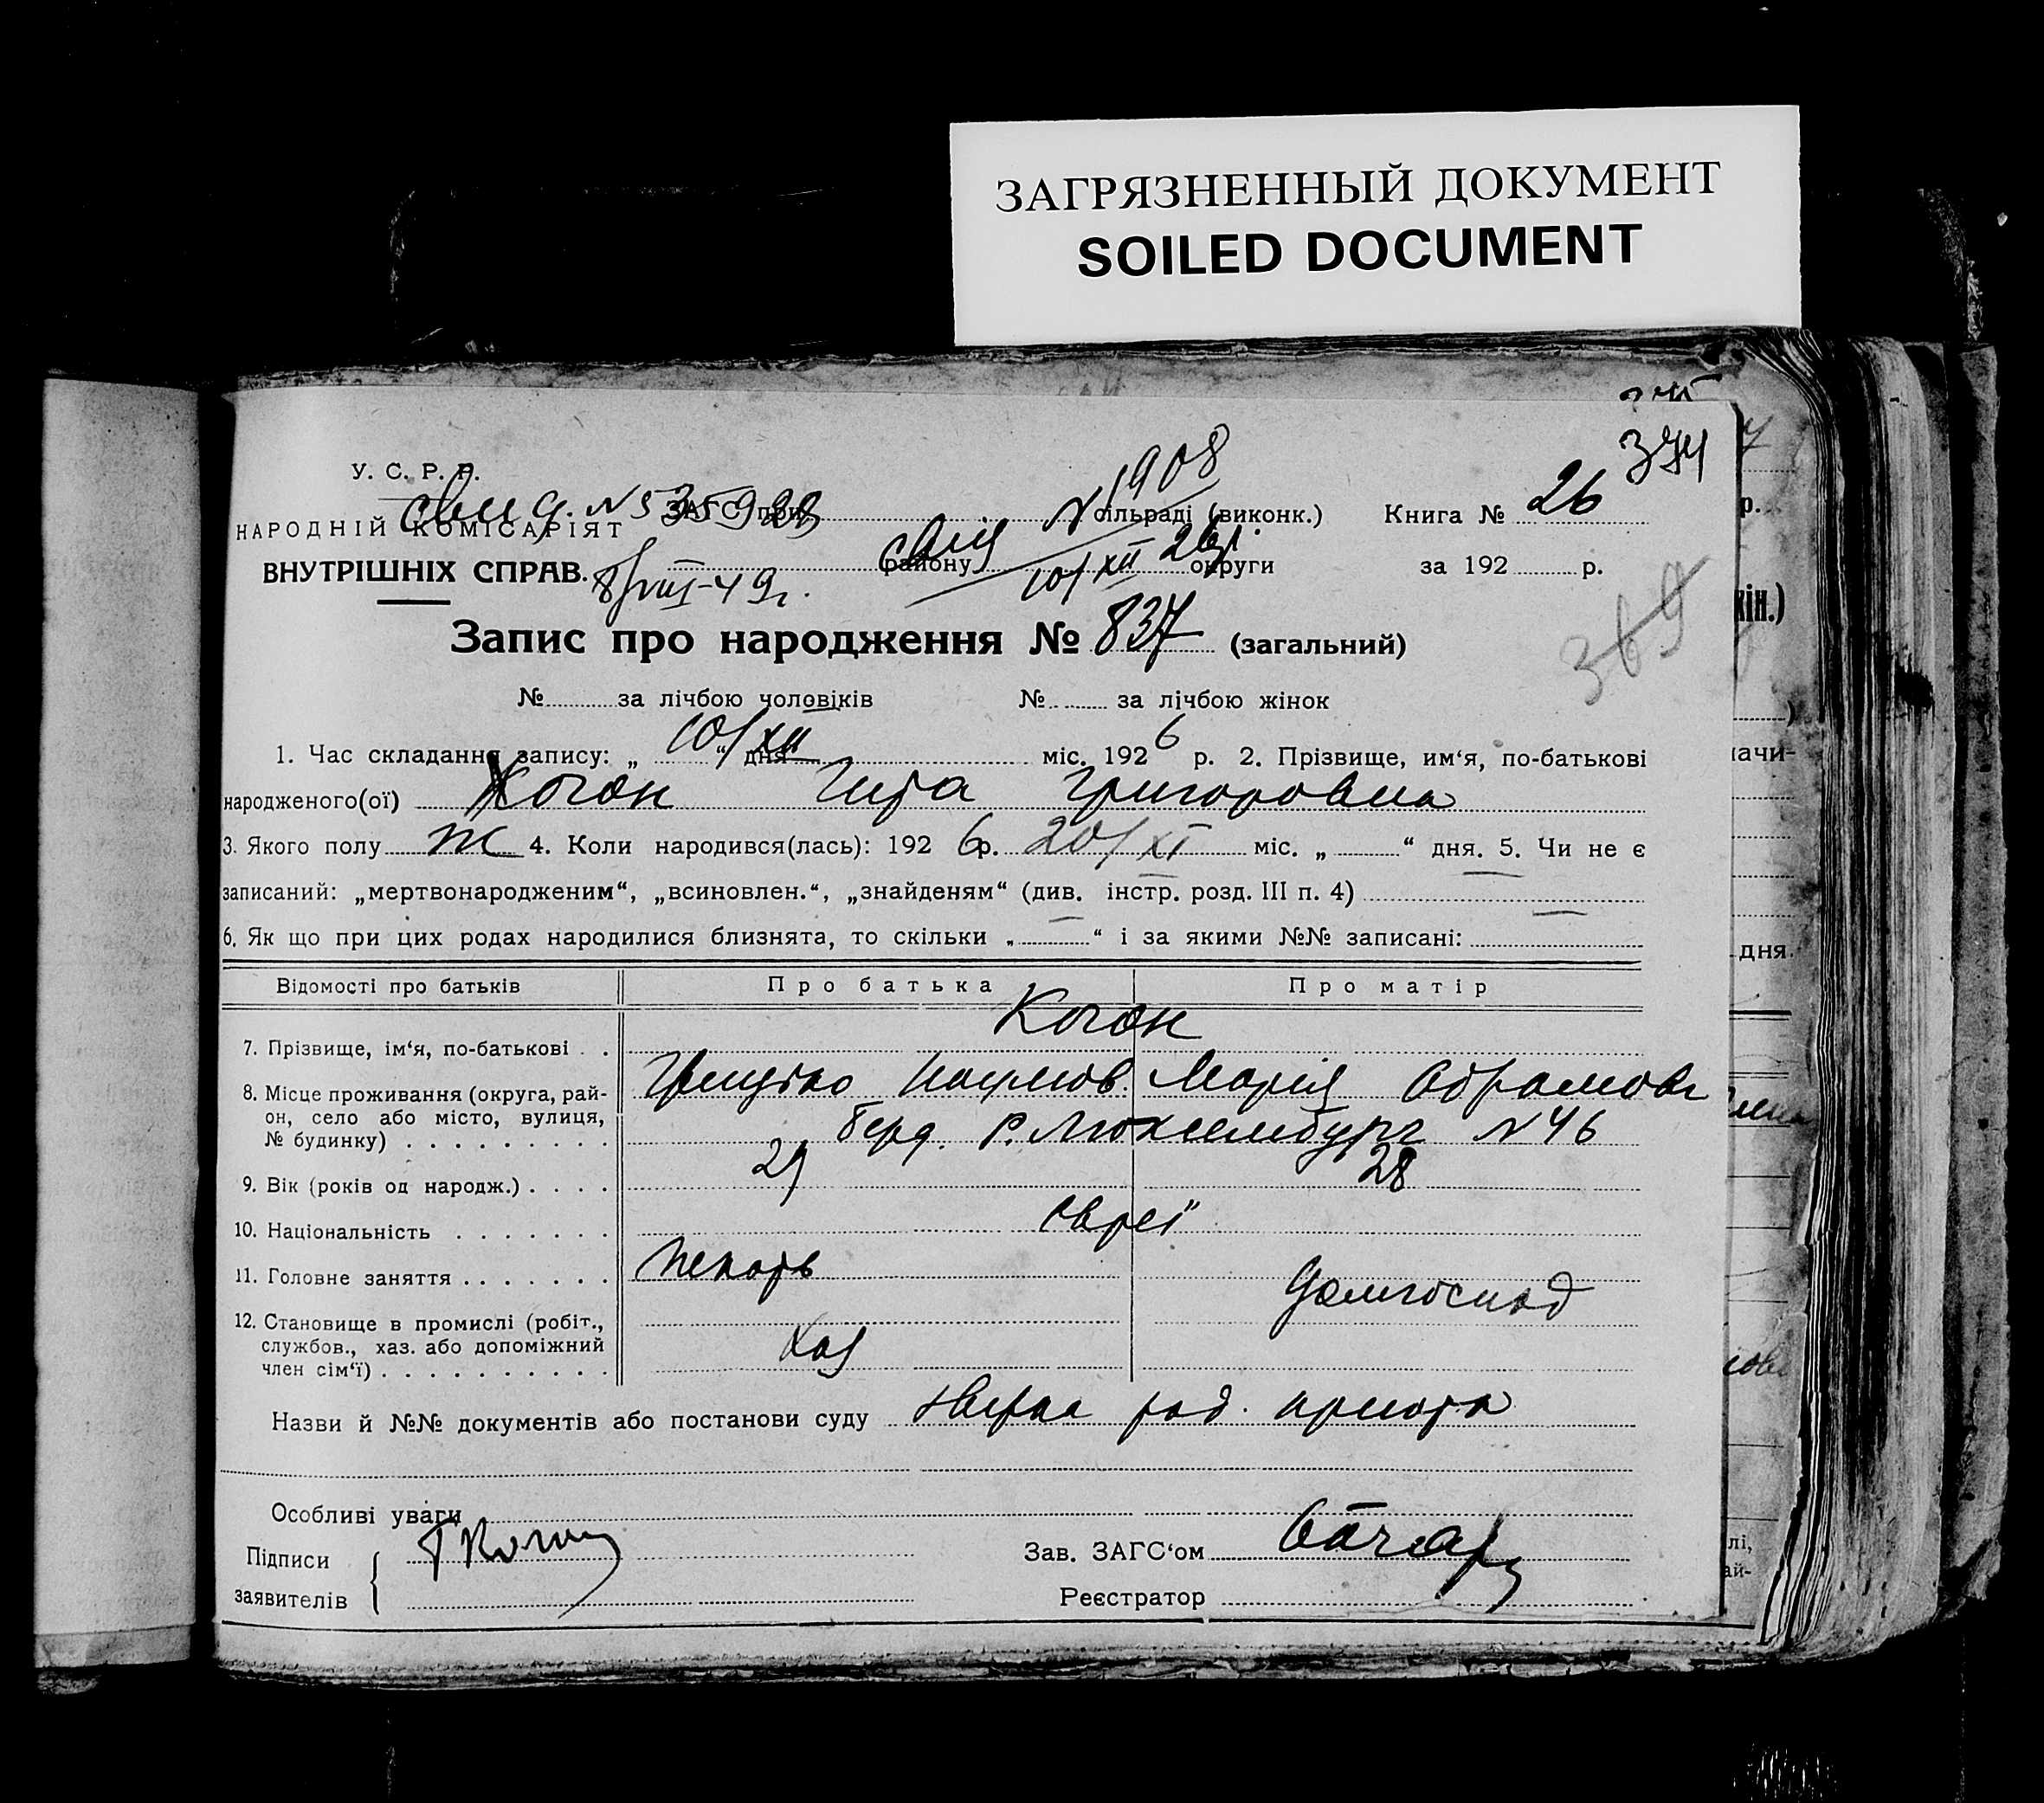 ЗАГРЯЗНЕННЫЙ ДОКУМЕНТ
SOILED DOCUMENT
374
У. С. Р. Р.
НАРОДНІЙ КОМІСАРІЯТ
ВНУТРІШНІХ СПРАВ.
свид. N
8/VIII-49г.
ЗАГС при сільраді (виконк.)
району округи
N 1908
10/XII 26р.
Книга № 26
за 192 р.
369
Запис про народження № 837 (загальний)
№ за лічбою чоловіків № за лічбою жінок
1. Час складання запису: „ 10/XII “ дня міс. 1926 р. 2. Прізвище, им‘я, по-батькові
народженого(ої) Коган Гита Григоровна
3. Якого полу ж 4. Коли народився(лась): 192 6р. 20/XI міс. „ “ дня. 5. Чи не є
записаний: „мертвонародженим“, „всиновлен.“, „знайденям“ (див. інстр. розд. III п. 4) —
6. Як що при цих родах народилися близнята, то скільки „ — “ і за якими №№ записані: —
Відомості про батьків Про батька Про матір
7. Прізвище, ім‘я, по-батькові . . Коган
Наумов. Марія Абрамовн
8. Місце проживання (округа, рай-
он, село або місто, вулиця,
№ будинку) . . . . . . . . . Берд. Р. Люксембург N 46
9. Вік (років од народж.) . . . . 29 28
10. Національність . . . . . . . євреї
11. Головне заняття . . . . . . . пекарь домгоспод
12. Становище в промислі (робіт.,
службов., хаз. або допоміжний
член сім‘ї) . . . . . . . . . . хаз
Назви й №№ документів або постанови суду род. приюта
Особливі уваги
Підписи
заявителів
Г Коган
Зав. ЗАГС‘ом
Реєстратор